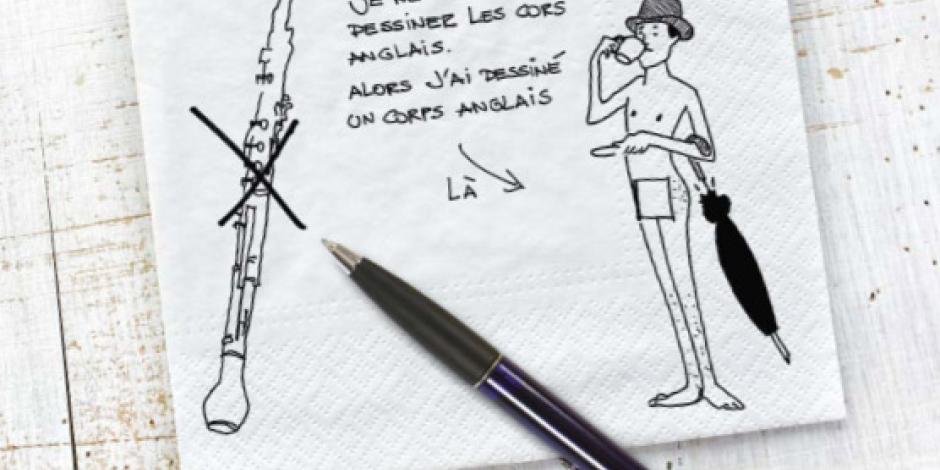 JE
DESSINER LES CORS
ANGLAIS.
ALORS J'AI DESSINÉ
UN CORPS ANGLAIS
LÀ